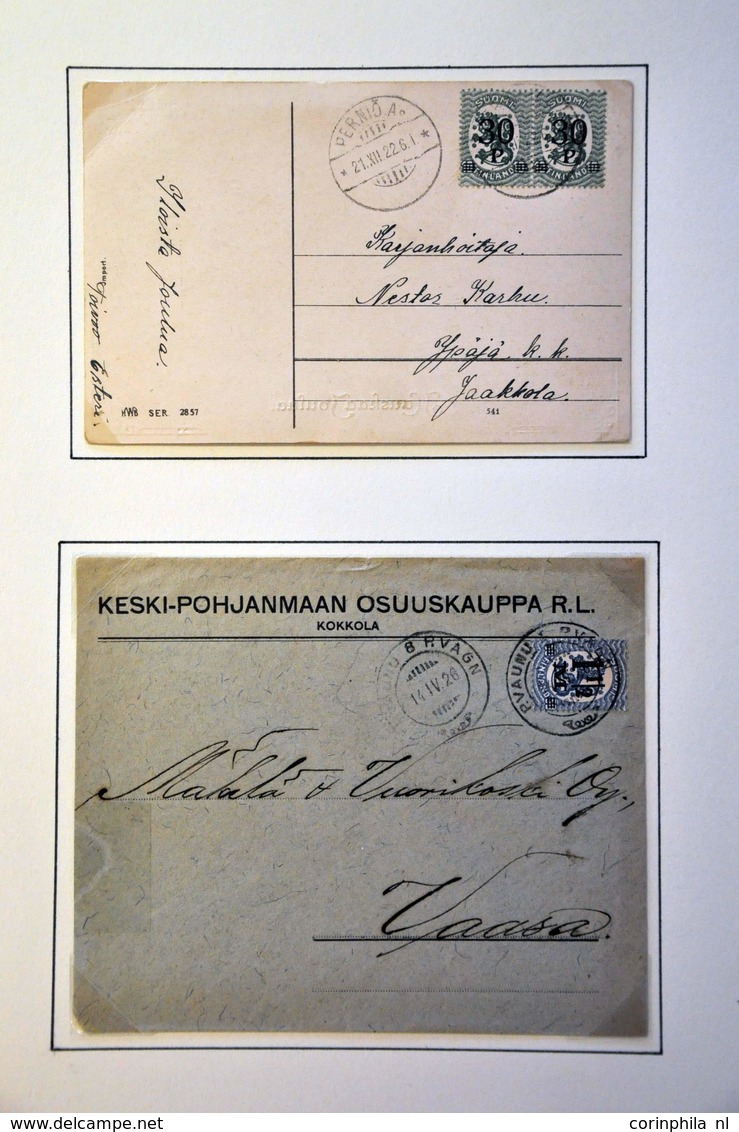 PERNIÖ As
* 21.XII.22.6.I *
SUOMI SUOMI
30 30
P P
FINLAND FINLAND
Iloista Joulua.
Toivo Esteri.
Karjanhoitaja
Nestor Karhu.
Ypäjä k. k.
Jaakkola.
HWB SER. 2857
Hauskaa Joulua
541
KESKI-POHJANMAAN OSUUSKAUPPA R.L.
KOKKOLA
8 P.VAGN
14.IV.26
P.VAUNU
Mätälä & Vuorikoski Oy.,
Vaasa.
delcampe.net
corinphila nl